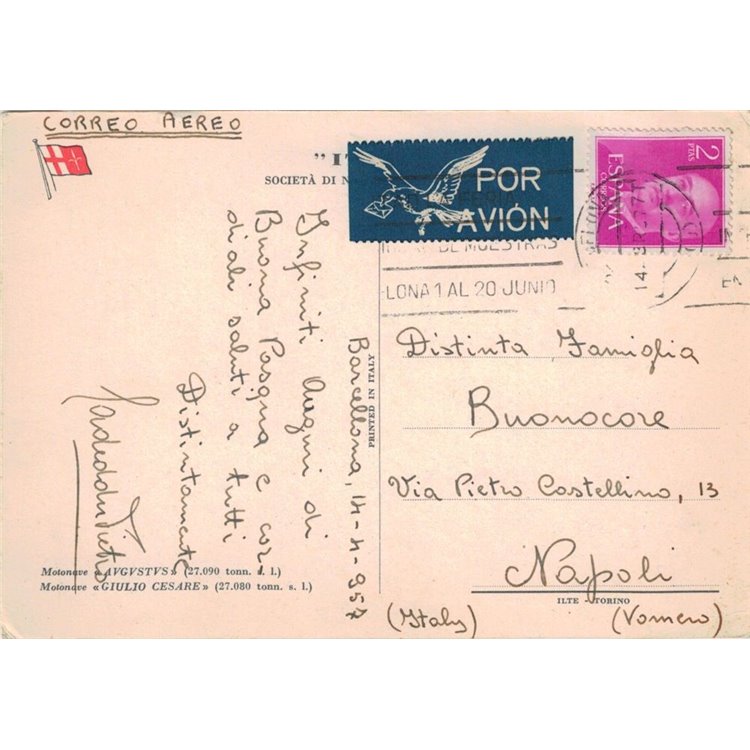 CORREO AEREO
"IT
SOCIETÀ DI N
POR
AVIÓN
2
PTAS
ESPAÑA
CORREOS
DE MUESTRAS
LONA 1 AL 20 JUNIO
EN
Barcellona, 14-4-957
Infiniti Auguri di
Buona Pasqua e cor-
diali saluti a tutti
Distintamente
Pietro
PRINTED IN ITALY
Distinta Famiglia
Buonocore
Via Pietro Costellino, 13
Napoli
(Italy)
(Vomero)
Motonave «AVGVSTVS» (27.090 tonn. s. l.)
Motonave «GIULIO CESARE» (27.080 tonn. s. l.)
ILTE - TORINO